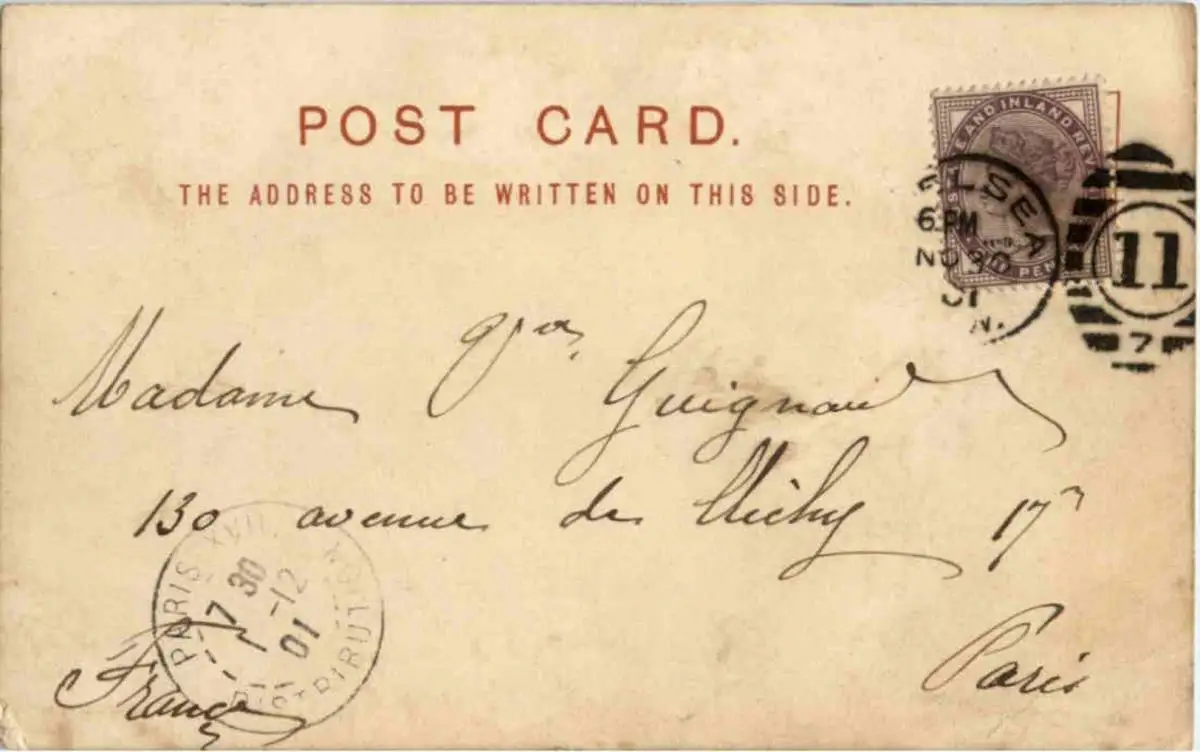 POST CARD.
THE ADDRESS TO BE WRITTEN ON THIS SIDE.
E AND INLAND REV
PEN
LSEA
6 PM
NO 30
01
N.
11
7
Madame Guignard
130 avenue de Clichy 17
Paris
France
PARIS XVII DISTRIBUTION
7 30
1 -12
01